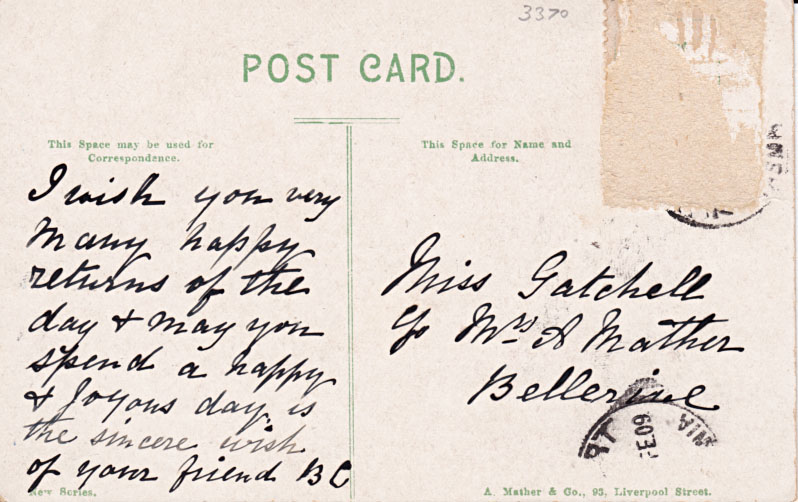 3370
POST CARD.
This Space may be used for
Correspondence.
This Space for Name and
Address.
I wish you very
many happy
returns of the
day & may you
spend a happy
& Joyous day, is
the sincere wish
of your friend BC
Miss Gatchell
c/o Mrs A Mather
Bellerive
FE 09
New Series.
A. Mather & Co., 93, Liverpool Street.